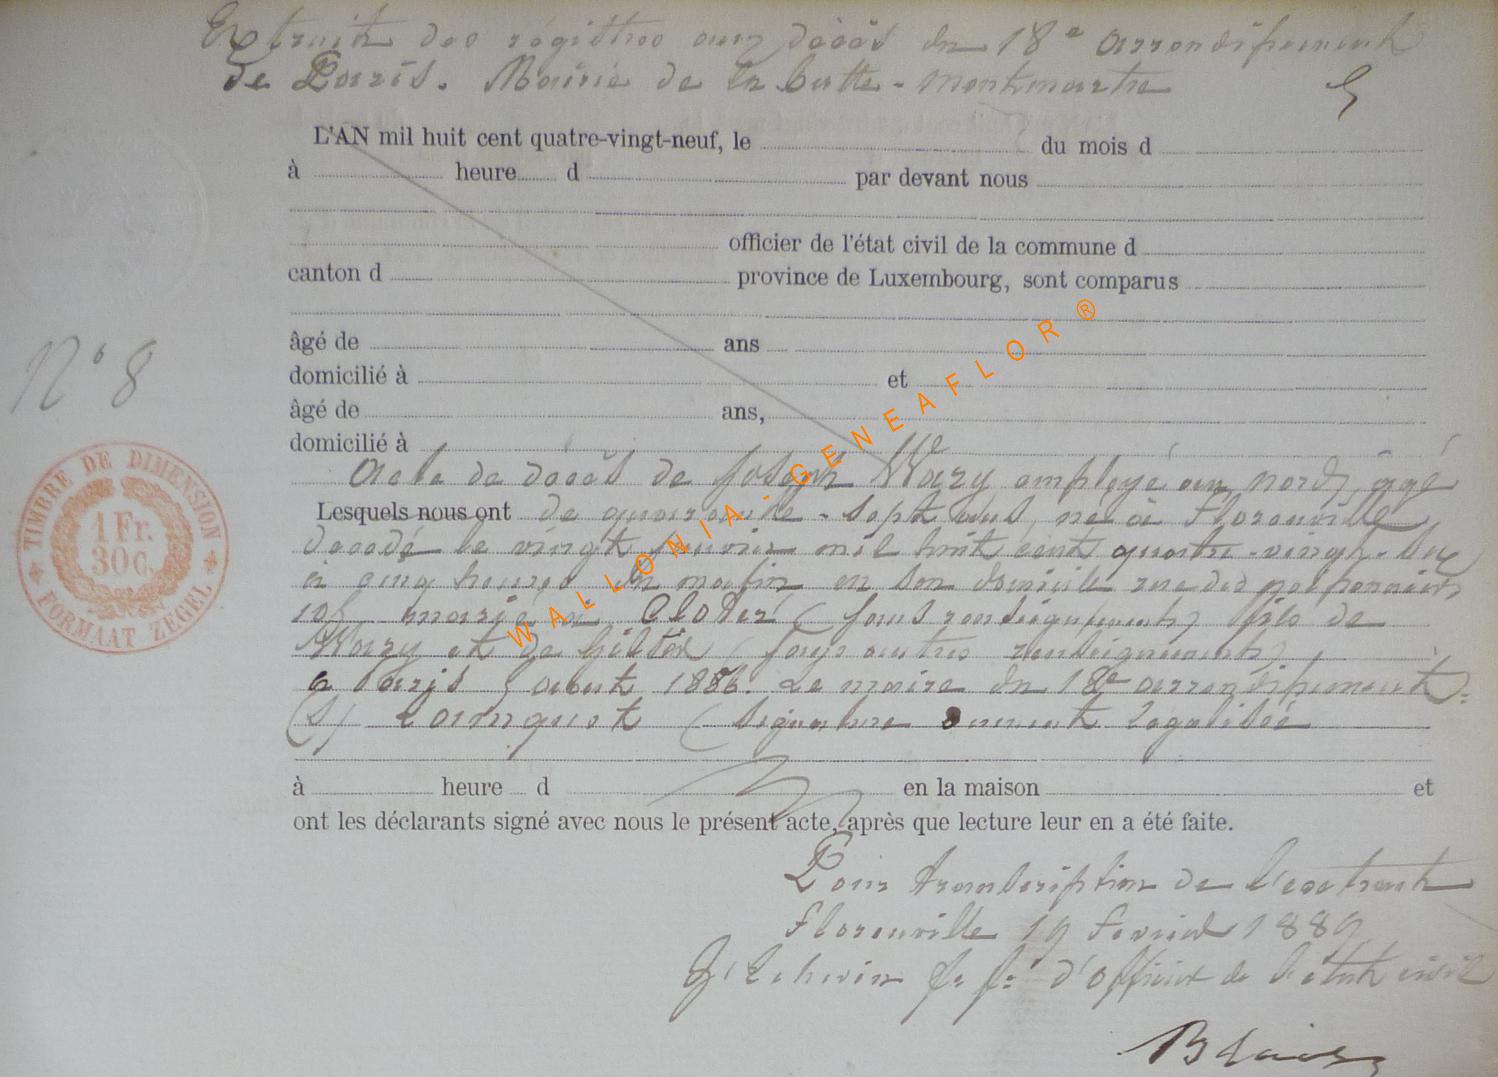 Extrait des régistres aux décès du 18e arrondissement
de Paris. Mairie de la butte-montmartre
L'AN mil huit cent quatre-vingt-neuf, le du mois d
à heure d par devant nous
officier de l'état civil de la commune d
canton d province de Luxembourg, sont comparus
âgé de ans
domicilié à et
âgé de ans,
domicilié à
N° 8
TIMBRE DE DIMENSION
1 Fr.
30 c.
FORMAAT ZEGEL
acte de décès de Joseph Wary employé au nord, âgé
Lesquels nous ont de quarante-sept ans, né à Florenville
décédé le vingt janvier mil huit cent quatre-vingt-six
à cinq heures du matin en son domicile rue des poissonniers
marié à (sans renseignements) fils de
Wary et de (sans autres renseignements)
à Paris 5 aout 1886. Le maire du 18e arrondissement
(s) (signature dument légalisée
à heure d en la maison et
ont les déclarants signé avec nous le présent acte, après que lecture leur en a été faite.
Pour transcription de l'extrait
Florenville 19 février 1889
f. f. d'officier de l'état civil
WALLONIA - GENEAFLOR ®